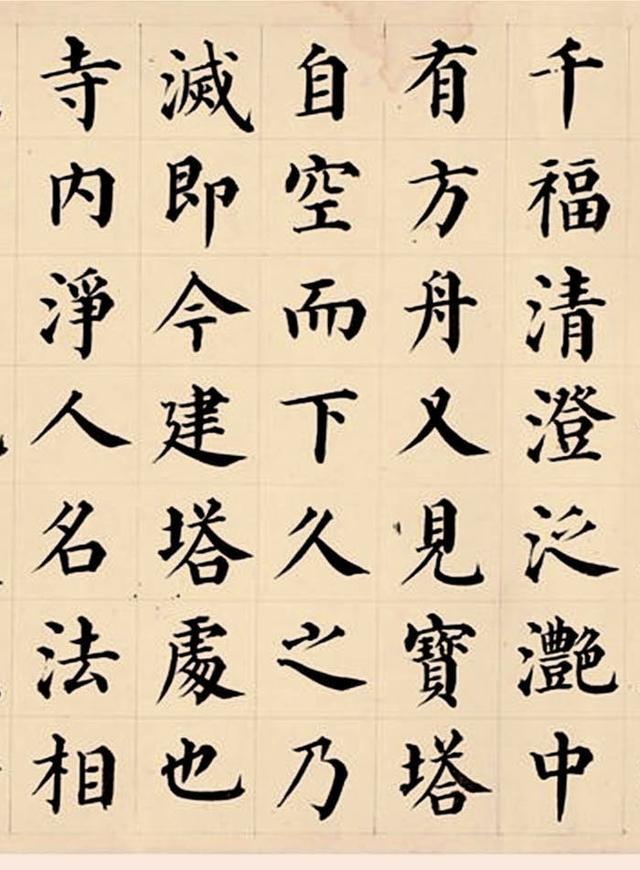 千福清澄泛灔中
有方舟又見寶塔
自空而下久之乃
滅即今建塔處也
寺内淨人名法相